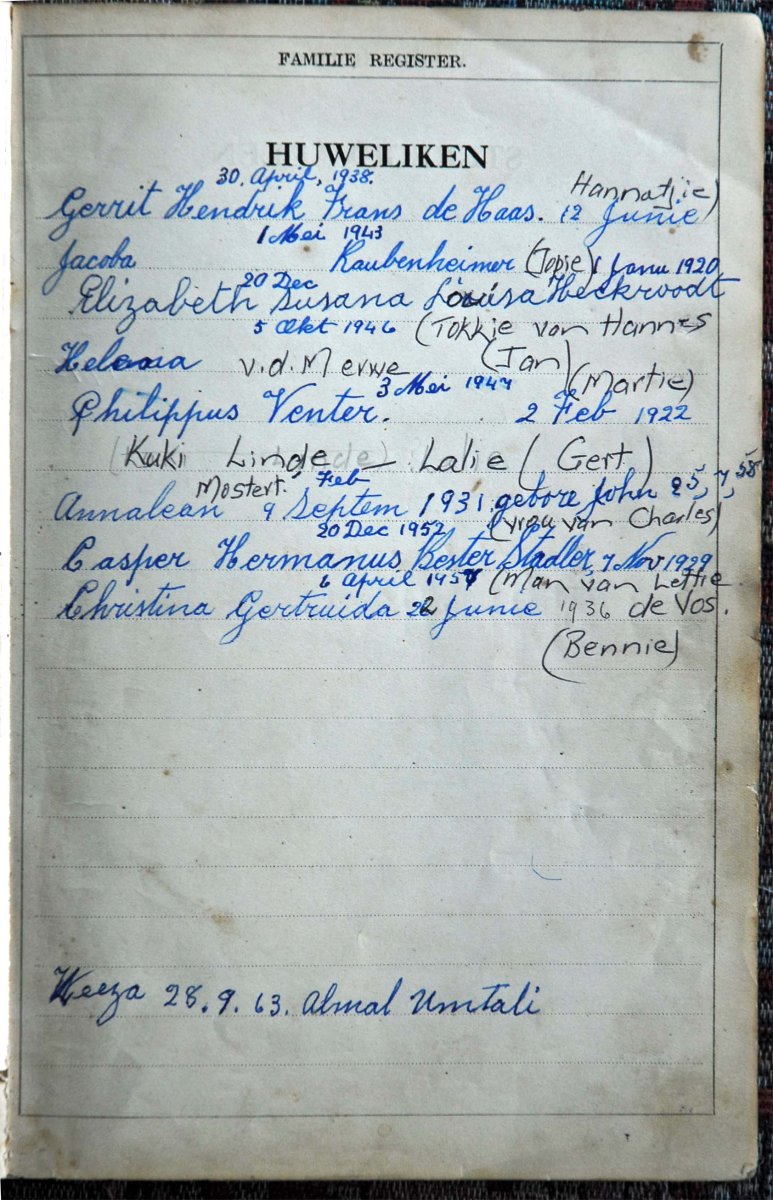 FAMILIE REGISTER.
HUWELIKEN
30. April, 1938.
Hannatjie)
Gerrit Hendrik Frans de Haas. 12 Junie
1 Mei 1943
Jacoba Raubenheimer (Topie) 1 Janu 1920
20 Dec
Elizabeth Susana Louisa Heckroodt
5 Okt 1946 (Tokkie van Hannes
Helena v.d. Merwe (Jan)
3 Mei 1947 (Martie)
Philippus Venter. 2 Feb 1922
(Kuki Linde — Lalie (Gert)
Mostert. Feb
Annalean 9 Septem 1931. gebore John 25, 7, 58
20 Dec 1952 (vrou van Charles)
Casper Hermanus Bester Stadler, 7 Nov 1929
6 April 1957 (Man van Lettie
Christina Gertruida 22 Junie 1936 de Vos.
(Bennie)
28.9.63. Almal Umtali